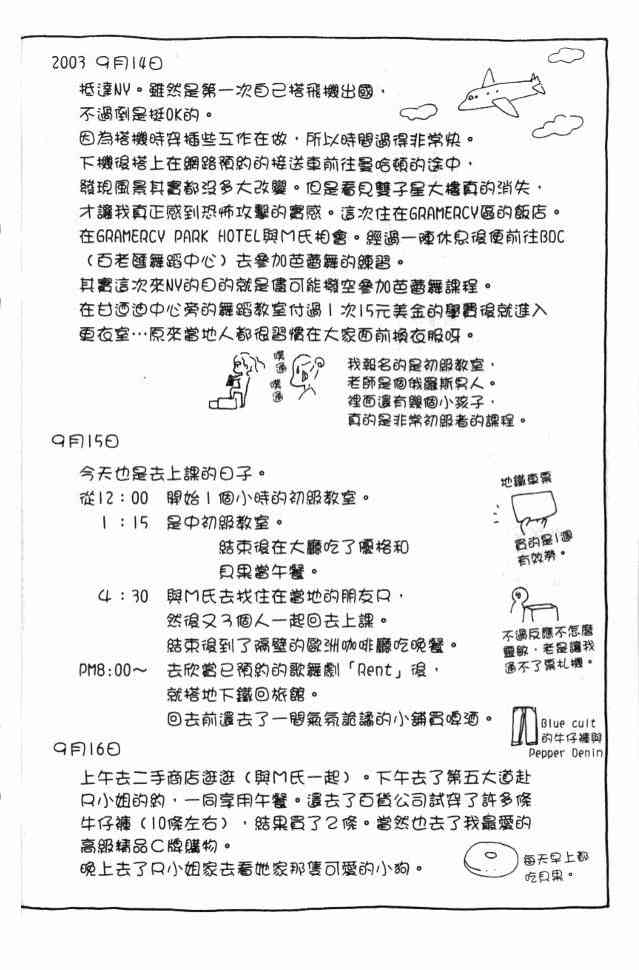 2003 9月14日
抵達NY。雖然是第一次自己搭飛機出國，
不過倒是挺OK的。
因為搭機時穿插些工作在做，所以時間過得非常快。
下機後搭上在網路預約的接送車前往曼哈頓的途中，
發現風景其實都沒多大改變。但是看見雙子星大樓真的消失，
才讓我真正感到恐怖攻擊的實感。這次住在GRAMERCY區的飯店。
在GRAMERCY PARK HOTEL與M氏相會。經過一陣休息後便前往BDC
（百老匯舞蹈中心）去參加芭蕾舞的練習。
其實這次來NY的目的就是儘可能撥空參加芭蕾舞課程。
在甘迺迪中心旁的舞蹈教室付過1次15元美金的學費後就進入
更衣室…原來當地人都很習慣在大家面前換衣服呀。
噗通
噗通
我報名的是初級教室，
老師是個俄羅斯男人。
裡面還有幾個小孩子，
真的是非常初級者的課程。
9月15日
今天也是去上課的日子。
從12：00 開始1個小時的初級教室。
1：15 是中初級教室。
結束後在大廳吃了優格和
貝果當午餐。
4：30 與M氏去找住在當地的朋友R，
然後又3個人一起回去上課。
結束後到了隔壁的歐洲咖啡廳吃晚餐。
PM8:00～ 去欣賞已預約的歌舞劇「Rent」後，
就搭地下鐵回旅館。
回去前還去了一間氣氛詭譎的小舖買啤酒。
地鐵車票
買的是1週
有效券。
不過反應不怎麼
靈敏，老是讓我
過不了票札機。
Blue cult
的牛仔褲與
Pepper Denin
9月16日
上午去二手商店逛逛（與M氏一起）。下午去了第五大道赴
R小姐的約，一同享用午餐。還去了百貨公司試穿了許多條
牛仔褲（10條左右），結果買了2條。當然也去了我最愛的
高級精品C牌購物。
晚上去了R小姐家去看她家那隻可愛的小狗。
每天早上都
吃貝果。